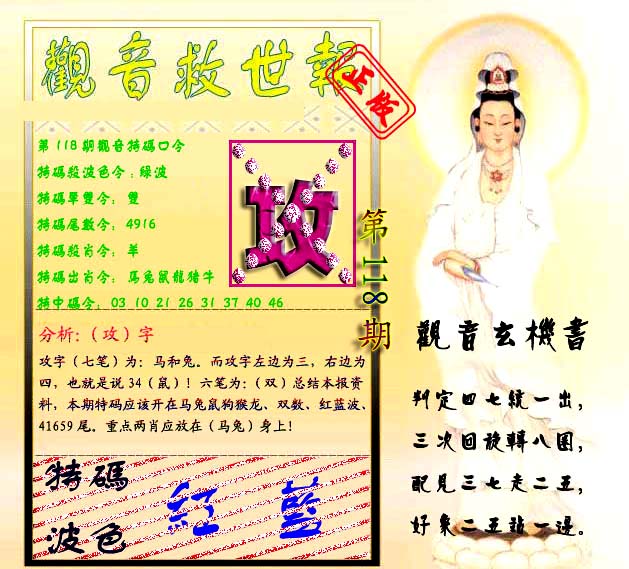 觀音救世報
正版
第118期觀音特碼口令
特碼殺波色令:綠波
特碼單雙令: 雙
特碼尾數令: 4916
特碼殺肖令: 羊
特碼出肖令: 馬兔鼠龍豬牛
特中碼令: 03 10 21 26 31 37 40 46
攻
第118期
分析:(攻)字
攻字(七笔)为: 马和兔。而攻字左边为三, 右边为
四, 也就是说34(鼠)! 六笔为:(双)总结本报资
料, 本期特码应该开在马兔鼠狗猴龙、双数、红蓝波、
41659尾。重点两肖应放在(马兔)身上!
特碼
波色
紅 藍
觀音玄機書
判定四七統一出,
三次回旋轉八圍,
配見三七走二五,
好象二五詣一邊。